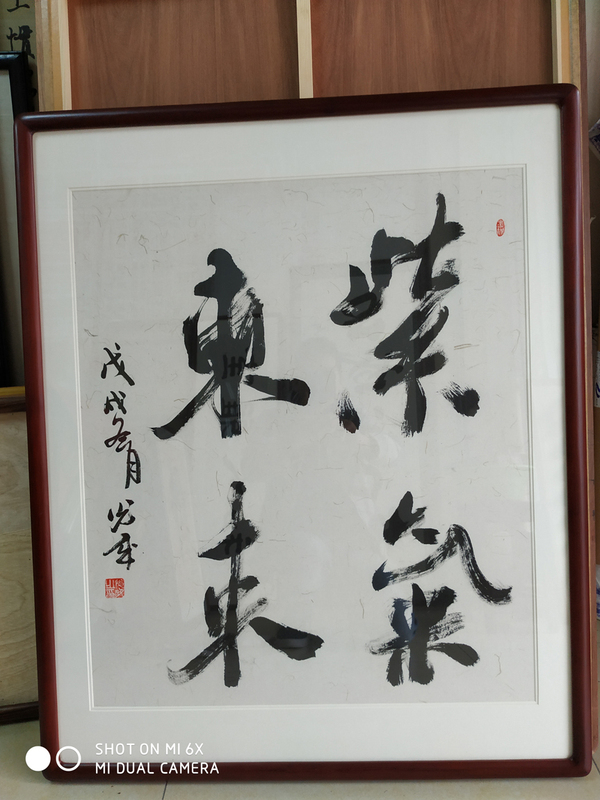 紫氣
東来
戊戌冬月
SHOT ON MI 6X
MI DUAL CAMERA